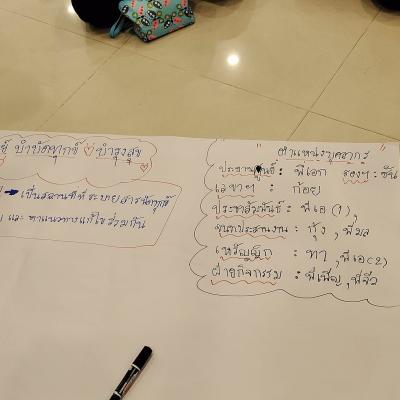 บำบัดทุกข์ ♡ บำรุงสุข
เป็นสถานที่ที่ระบายสารบัดทุกข์
และ หาแนวทางแก้ไขร่วมกัน
ตำแหน่งบุคลากร
ประธาน : พี่เอก รองฯ : ซัน
เลขาฯ : ก้อย
ประชาสัมพันธ์ : พี่เอ (1),
ประสานงาน : กุ้ง, พี่มล
เหรัญญิก : ทา, พี่เอ (2)
ฝ่ายกิจกรรม : พี่เพ็ญ, พี่จิ๋ว